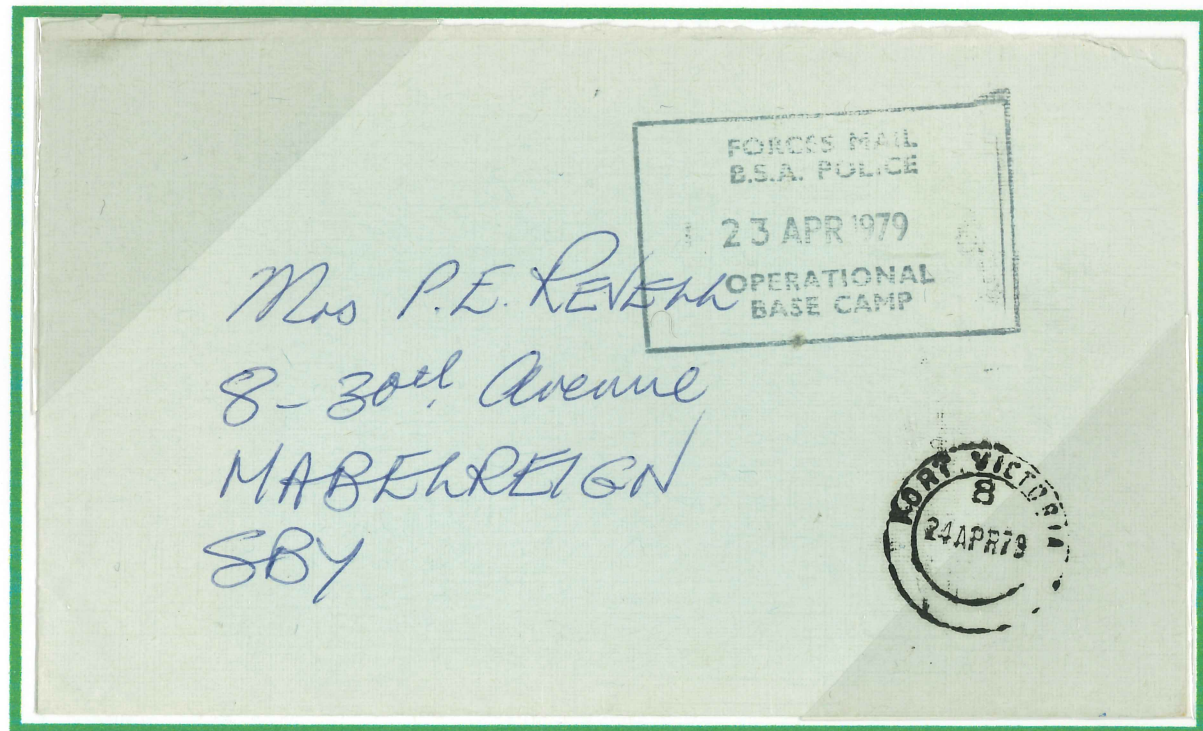 FORCES MAIL
B.S.A. POLICE
23 APR 1979
OPERATIONAL
BASE CAMP
Mrs P.E. REVELL
8 - 30th Avenue
MABELREIGN
SBY
FORT VICTORIA
8
24 APR 79